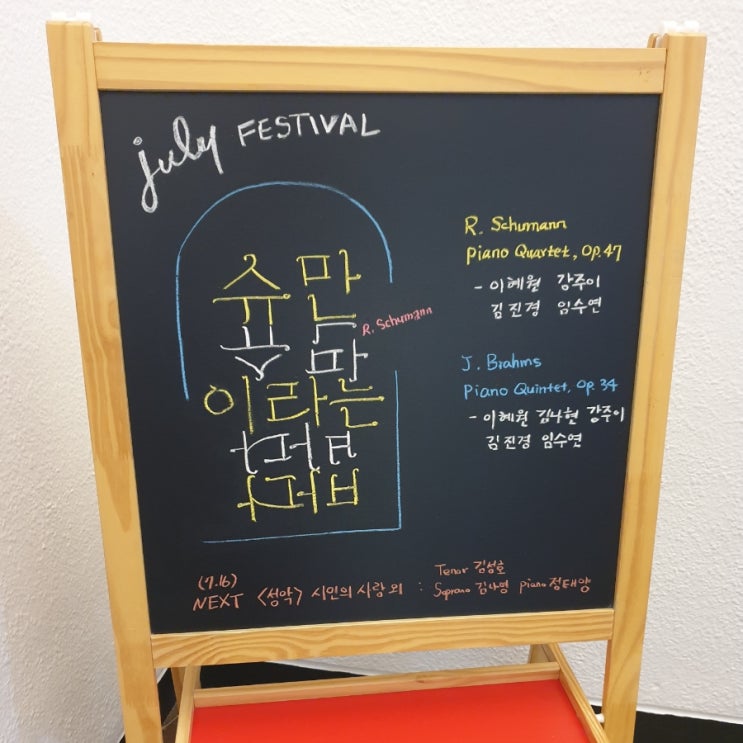 july FESTIVAL
슈만
R. Schumann
이라는
R. Schumann
Piano Quartet, Op.47
- 이혜원 강주이
김진경 임수연
J. Brahms
Piano Quintet, Op.34
- 이혜원 김나현 강주이
김진경 임수연
(7.16)
NEXT 〈성악〉 시인의 사랑 외 :
Tenor 김성호
Soprano 김나영 piano 정태양